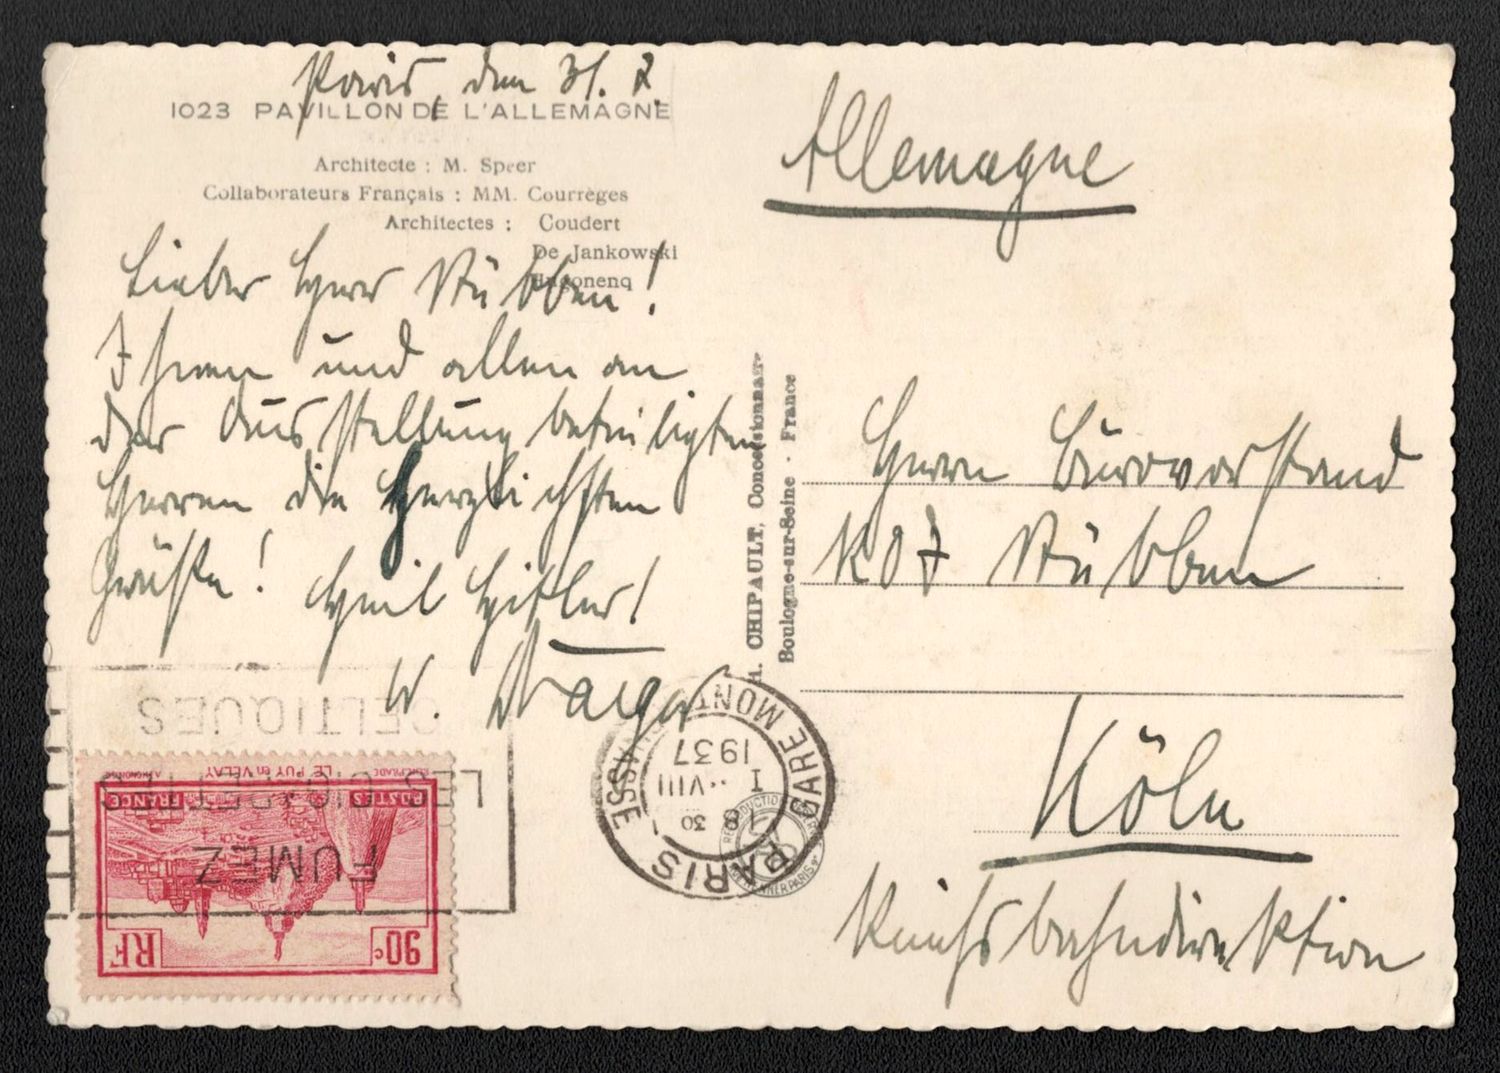 Paris, den 31. 7.
1023 PAVILLON DE L'ALLEMAGNE
Architecte : M. Speer
Collaborateurs Français : MM. Courrèges
Architectes : Coudert
De Jankowski
Hugonenq
Lieber Herr Rübben!
Ihnen und allen an
der Ausstellung beteiligten
Herren die herzlichsten
Grüße! Heil Hitler!
W.
Allemagne
Herrn Bürovorstand
Rübben
Köln
Reichsbahndirektion
A. CHIPAULT, Concessionnaire
Boulogne-sur-Seine - France
PARIS GARE MONTPARNASSE
8 30
1 VIII
1937
FUMEZ
LES CIGARETTES
CELTIQUES
90c RF
POSTES FRANCE
LE PUY en VELAY